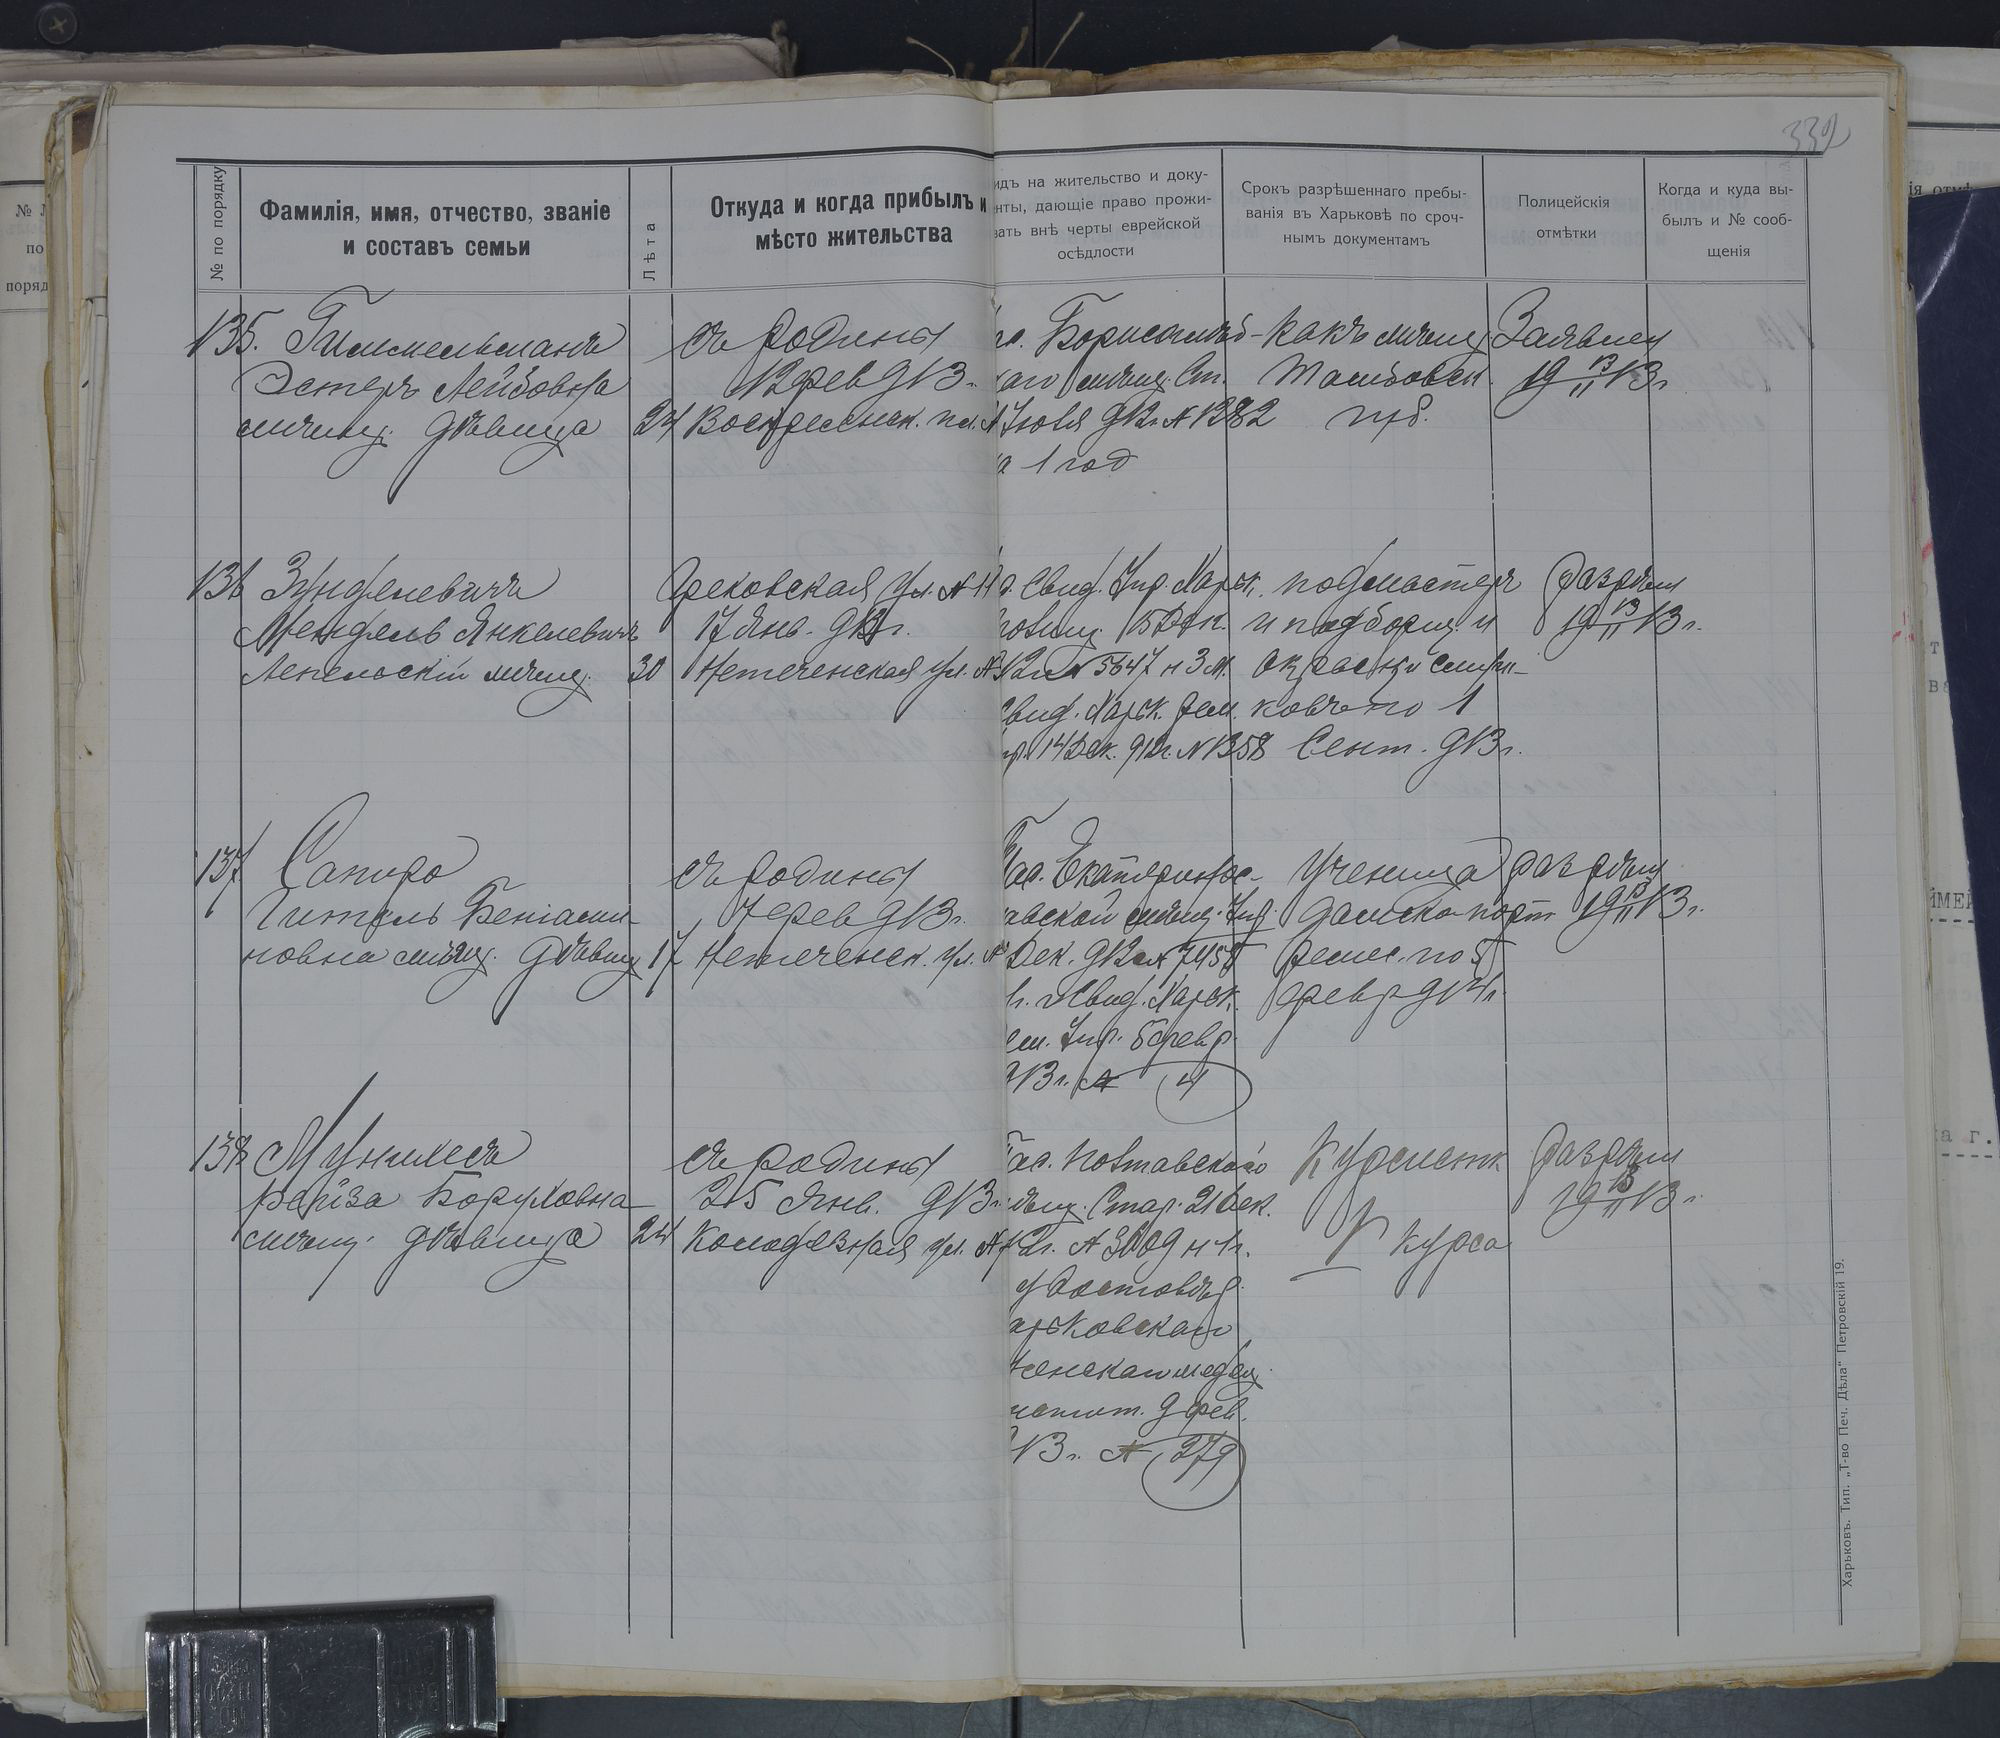 339
№ по порядку
Фамилія, имя, отчество, званіе
и составъ семьи
Лѣта
Откуда и когда прибылъ и
мѣсто жительства
идъ на жительство и доку-
нты, дающіе право прожи-
вать внѣ черты еврейской
осѣдлости
Срокъ разрѣшеннаго пребы-
ванія въ Харьковѣ по сроч-
нымъ документамъ
Полицейскія
отмѣтки
Когда и куда вы-
былъ и № сооб-
щенія
135. Гиммельманъ
Эстеръ Лейбовна
мѣщ. дѣвица 24
съ родины
12 фев 913
Воскресенск. пл.
Борисоглѣб-
скаго мѣщ. Ст.
Іюля 912 г. № 1382
на 1 год
какъ мѣщ.
Тамбовск.
губ.
Заявлен
19 13/II 13 г.
136 Зунделевичъ
Мендель Янкелевичъ
Лепельскій мѣщ. 30
Грековская ул. №
17 Янв. 913 г.
Нетеченская ул. №
Свид. Упр. Харьк.
15 Дек.
12 г. № 5647 н 3 м.
Свид. Харьк. Рем.
упр. 14 Дек. 912 г. № 1358
подмастер
1
Сент. 913 г.
Разрѣш
19 13/II 13 г.
137. Сапиро
Гитель Беніами-
новна мѣщ. дѣвиц 17
съ родины
7 фев 913 г.
Нетеченск. ул. №
Пас. Екатеринос-
лавской мѣщ. Упр.
Дек. 912 г. № 7455
и Свид. Харьк.
Рем. Упр. 5 февр.
913 г. № 4
Ученица
дамско-порт
ремес. по 5
февр 914 г.
разрѣш
19 13/II 13 г.
138 Мунихесъ
Рейза Боруховна
мѣщ. дѣвица 24
съ родины
25 Янв. 913 г.
Колодезная ул. №
Пас. Полтавскаго
мѣщ. Стар. 21 Дек.
12 г. № 3009 н 1 г.
удостовѣр.
Харьковскаго
женскаго медиц.
инстит. 9 фев.
913 г. № 279
Курсистк
I курса
Разрѣш
19 13/II 13 г.
Харьковъ. Тип. „Т-во Печ. Дѣла" Петровскій 19.